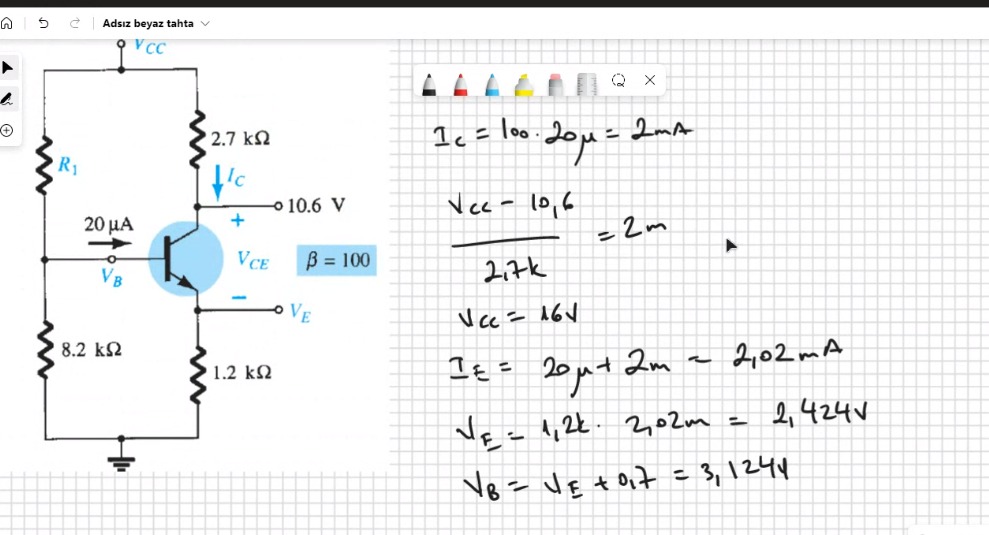 Adsız beyaz tahta
VCC
2.7 kΩ
R1
IC
10.6 V
20 μA
+
VCE
β = 100
VB
−
VE
8.2 kΩ
1.2 kΩ
Ic = 100 . 20μ = 2mA
Vcc - 10,6
= 2m
2,7k
Vcc = 16V
IE = 20μ + 2m = 2,02mA
VE = 1,2k . 2,02m = 2,424V
VB = VE + 0,7 = 3,124V